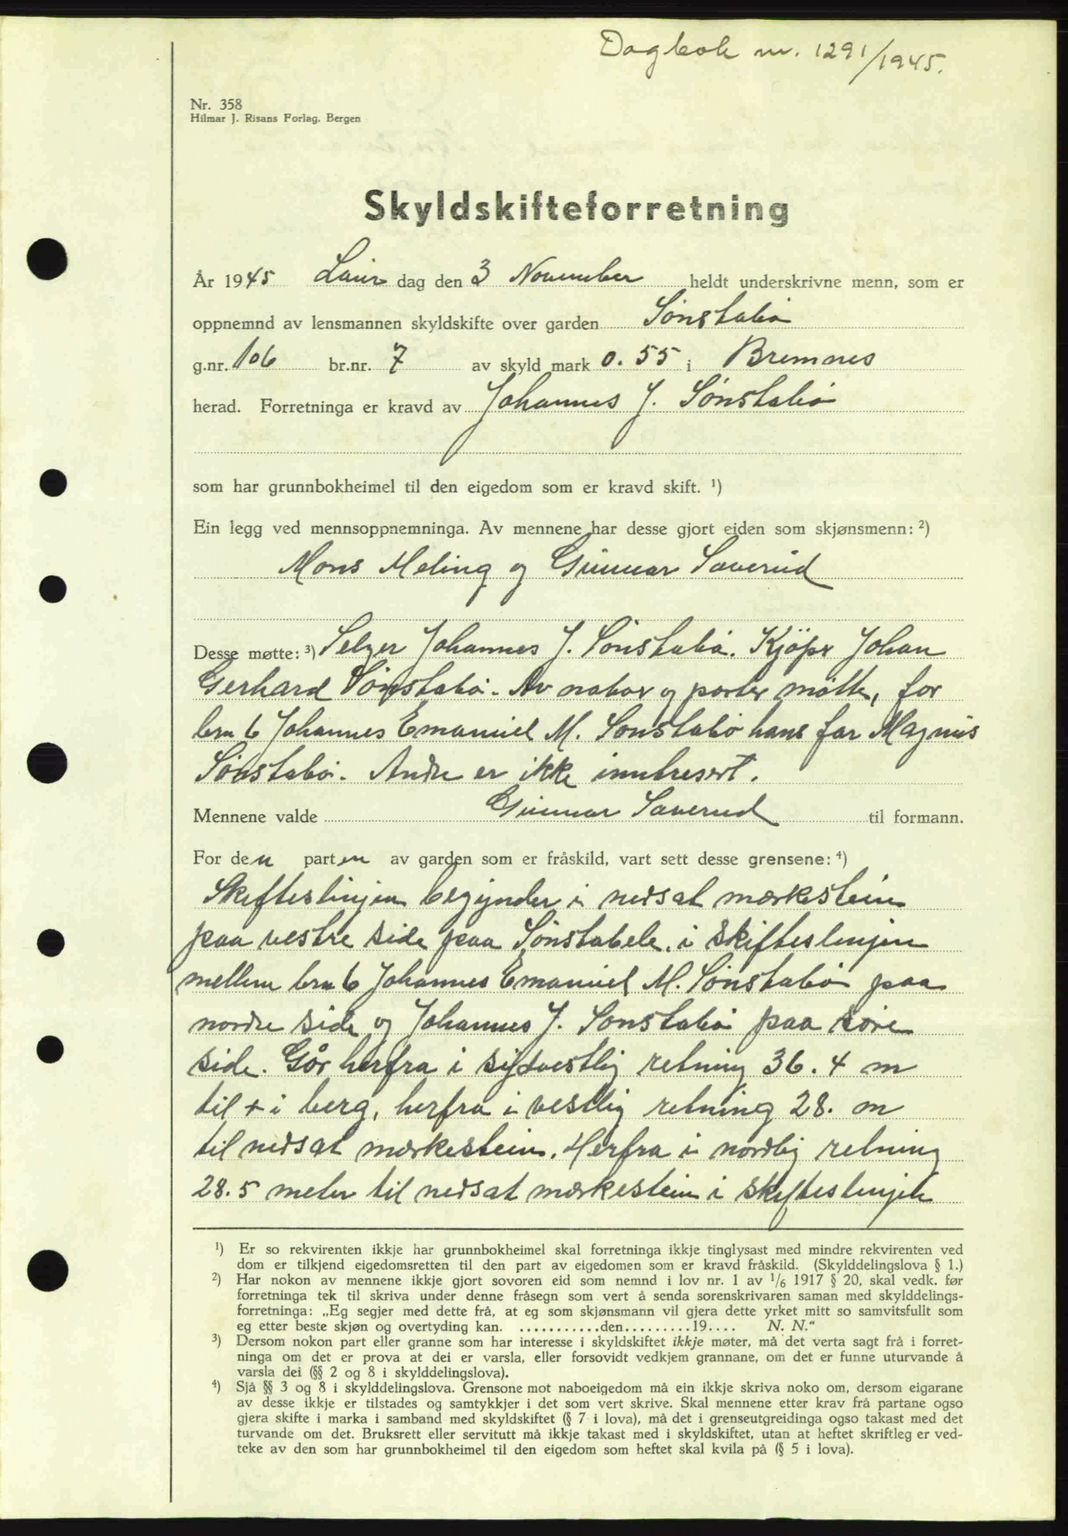 Dagbok nr. 1291/1945.
Nr. 358
Hilmar J. Risans Forlag. Bergen
Skyldskifteforretning
År 1945 Laur dag den 3 November heldt underskrivne menn, som er
oppnemnd av lensmannen skyldskifte over garden Sønstabø
g.nr. 106 br.nr. 7 av skyld mark 0.55 i Bremnes
herad. Forretninga er kravd av Johannes J. Sønstabø
som har grunnbokheimel til den eigedom som er kravd skift. ¹)
Ein legg ved mennsoppnemninga. Av mennene har desse gjort eiden som skjønsmenn: ²)
Mons Meling og Gunnar Saverud
Desse møtte: ³) Selger Johannes J. Sønstabø. Kjöper Johan
Gerhard Sønstabø. Av nabor og parter møtte, for
brn 6 Johannes Emanuel M. Sønstabø hans far Magnus
Sønstabø. Andre er ikke inntresert.
Mennene valde Gunnar Saverud til formann.
For den parten av garden som er fråskild, vart sett desse grensene: ⁴)
Skifteslinjen begynder i nedsat mærkestein
paa vestre side paa Sønstabøle, i skifteslinjen
mellem brn 6 Johannes Emanuel M. Sønstabø paa
nordre side og Johannes J. Sønstabø paa søre
side. Går herfra i sydvestlig retning 36.4 m
til + i berg, herfra i vestlig retning 28. m
til nedsat mærkestein. Herfra i nordlig retning
28.5 meter til nedsat mærkestein i skifteslinjen
¹) Er so rekvirenten ikkje har grunnbokheimel skal forretninga ikkje tinglysast med mindre rekvirenten ved
dom er tilkjend eigedomsretten til den part av eigedomen som er kravd fråskild. (Skylddelingslova § 1.)
²) Har nokon av mennene ikkje gjort sovoren eid som nemnd i lov nr. 1 av 1/6 1917 § 20, skal vedk. før
forretninga tek til skriva under denne fråsegn som vert å senda sorenskrivaren saman med skylddelings-
forretninga: „Eg segjer med dette frå, at eg som skjønsmann vil gjera dette yrket mitt so samvitsfullt som
eg etter beste skjøn og overtyding kan. ...........den.........19.... N. N.“
³) Dersom nokon part eller granne som har interesse i skyldskiftet ikkje møter, må det verta sagt frå i forret-
ninga om det er prova at dei er varsla, eller forsovidt vedkjem grannane, om det er funne uturvande å
varsla dei (§§ 2 og 8 i skylddelingslova).
⁴) Sjå §§ 3 og 8 i skylddelingslova. Grensone mot naboeigedom må ein ikkje skriva noko om, dersom eigarane
av desse ikkje er tilstades og samtykkjer i det som vert skrive. Skal mennene etter krav frå partane ogso
gjera skifte i marka i samband med skyldskiftet (§ 7 i lova), må det i grenseutgreidinga ogso takast med det
turvande om det. Bruksrett eller servitutt må ikkje takast med i skyldskiftet, utan at heftet skriftleg er ved-
teke av den som har grunnbokheimel til den eigedom som heftet skal kvila på (§ 5 i lova).